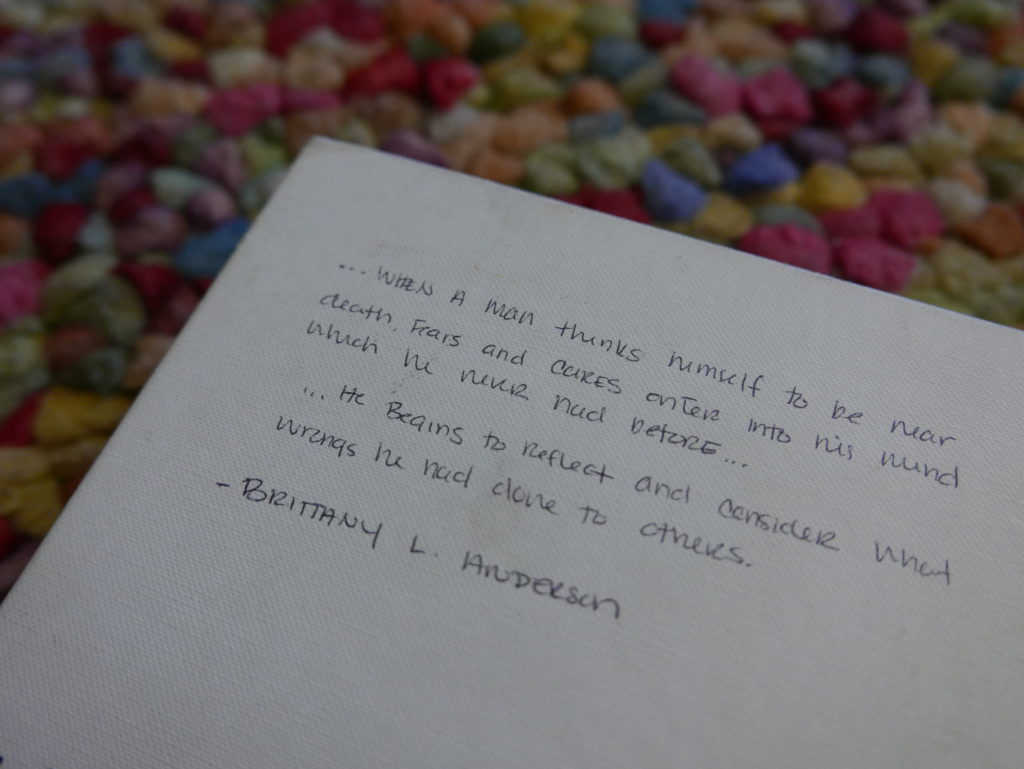 ... WHEN A man thinks himself to be near
death, Fears and CARES enter into his mind
which he never had before...
... He Begins to reflect and consider what
wrongs he had done to others.
- BRITTANY L. ANDERSON